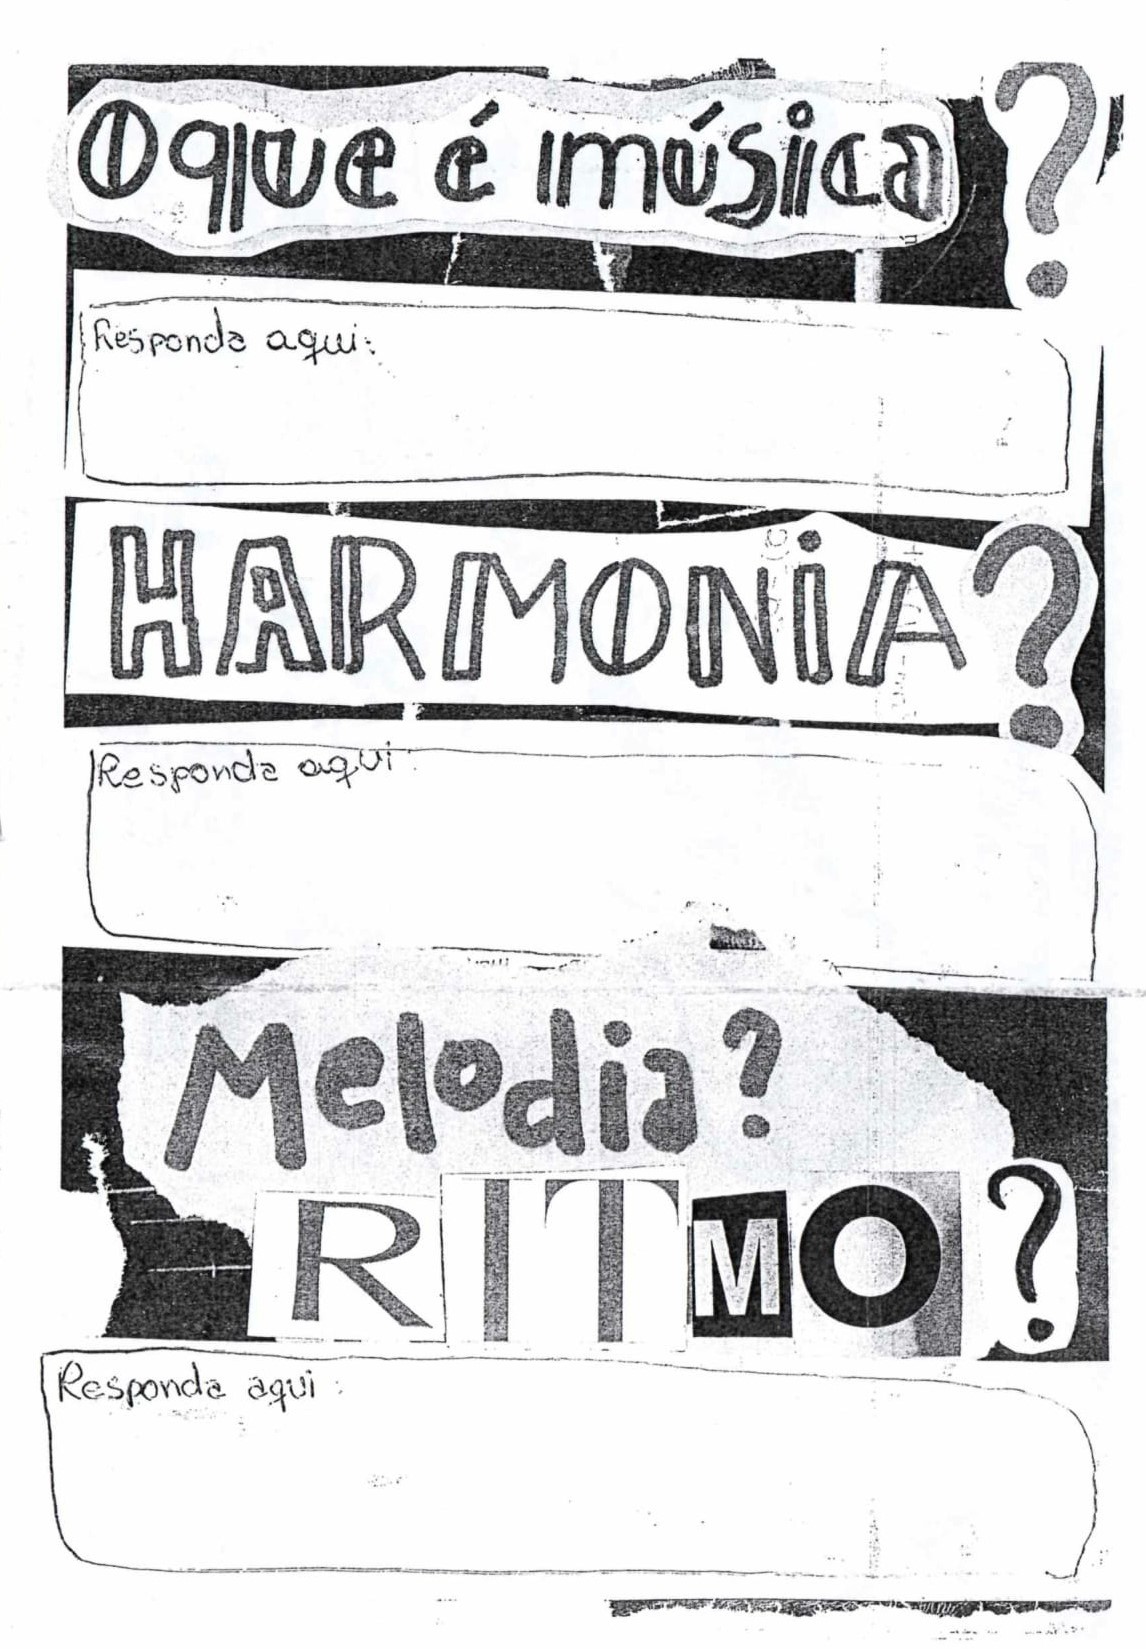 O que é música?
Responda aqui:
HARMONiA?
Responda aqui:
Melodia?
RITMO?
Responda aqui: